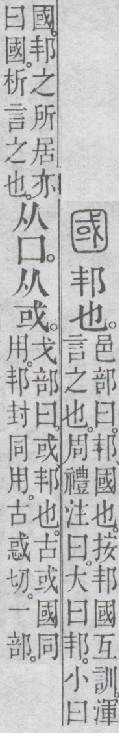 國 邦也。邑部曰。邦、國也。按邦國互訓。渾
言之也。周禮注曰。大曰邦。小曰
國。邦之所居亦
曰國。析言之也。
从囗。从或。戈部曰。或、邦也。古或國同
用。邦封同用。古惑切。一部。